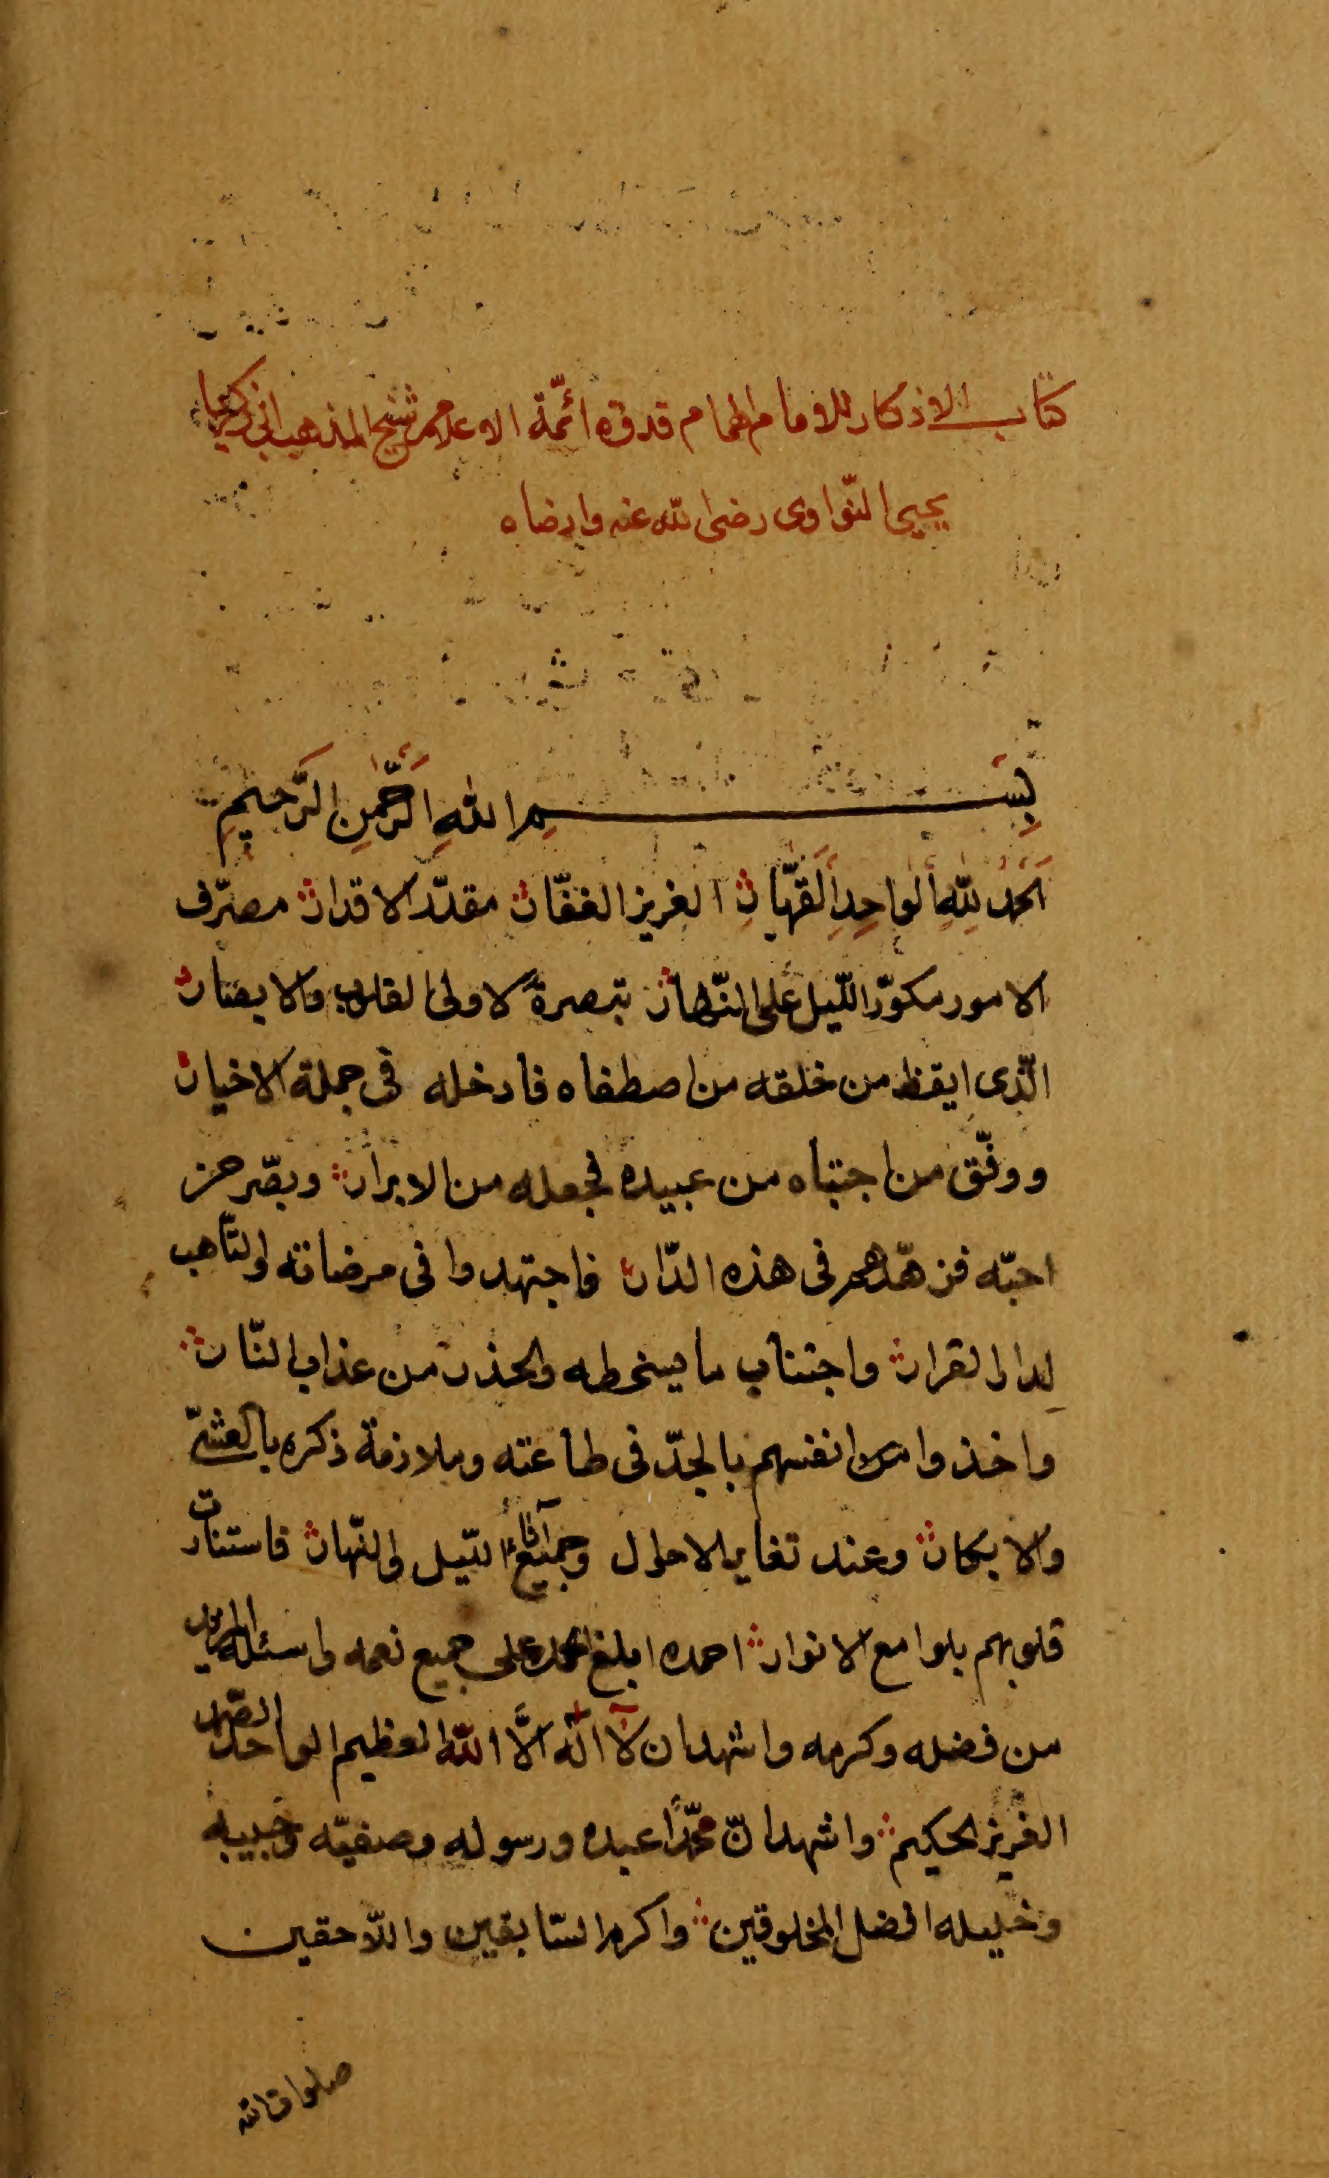 كتاب الاذكار للامام الهمام قدوة ائمّة الاعلام شيخ المذهب ابى زكريا
يحيى النّواوى رضى الله عنه وارضاه
بِسْمِ اللهِ الرَّحْمٰنِ الرَّحِيمِ
اَلحمدُ لِلّٰهِ الواحِدِ القَهّارِ العزيز الغفّار مقدّر الاقدار مصرّف
الامور مكوّر اللّيل على النّهار تبصرةً لاولى القلوب والابصار
الّذى ايقظ من خلقه من اصطفاه فادخله فى جملة الاخيار
ووفّق من اجتباه من عبيده فجعله من الابرار وبصّر من
احبّه فزهّدهم فى هذه الدّار فاجتهدوا فى مرضاته والتّأهب
لِدار القرار واجتناب ما يسخطه والحذر من عذاب النّار
واخذوا انفسهم بالجدّ فى طاعته وملازمة ذكره بالعشىّ
والابكار وعند تغاير الاحوال وجميع آناء اللّيل والنّهار فاستنارت
قلوبهم بلوامع الانوار احمده ابلغ الحمد على جميع نعمه واسئله المزيد
من فضله وكرمه واشهد ان لآ اله الاَّ اللّه العظيم الواحد الصّمد
العزيز الحكيم واشهد انّ محمّدًا عبده ورسوله وصفيّه وحبيبه
وخليله افضل المخلوقين واكرم السّابقين واللّاحقين
صلوات الله